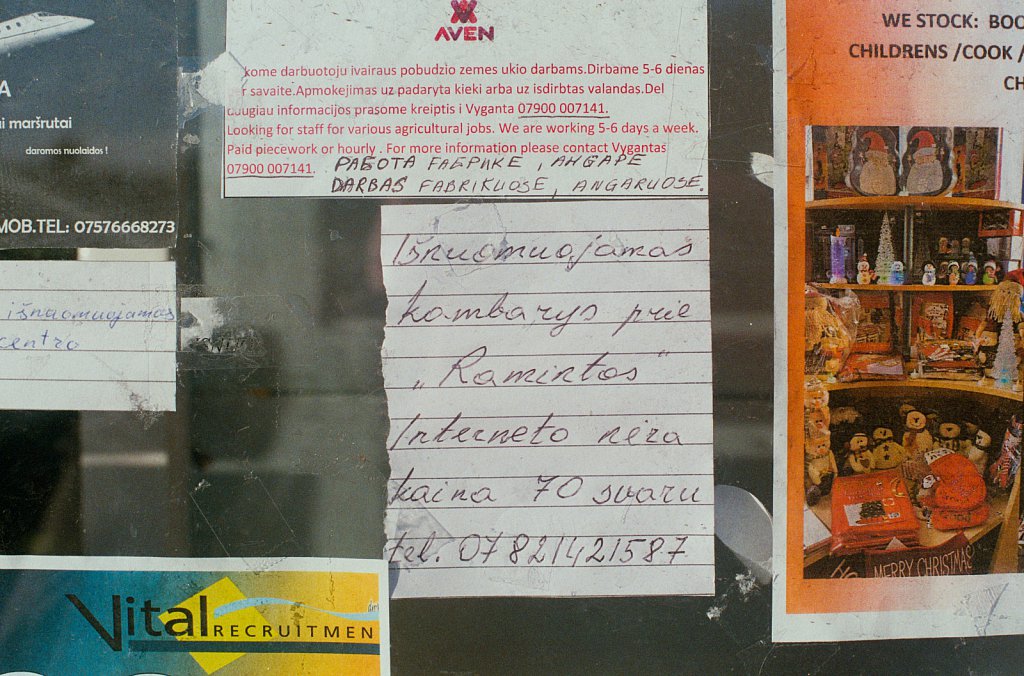 A
i maršrutai
daromos nuolaidos !
MOB.TEL: 07576668273
išnuomuojamas
centro
Vital RECRUITMEN
AVEN
kome darbuotoju ivairaus pobudzio zemes ukio darbams.Dirbame 5-6 dienas
r savaite.Apmokejimas uz padaryta kieki arba uz isdirbtas valandas.Del
daugiau informacijos prasome kreiptis i Vyganta 07900 007141.
Looking for staff for various agricultural jobs. We are working 5-6 days a week.
Paid piecework or hourly . For more information please contact Vygantas
07900 007141. РАБОТА FАБРИКЕ , АНГАРЕ
DARBAS FABRIKUOSE, ANGARUOSE.
Išnuomuojamas
kambarys prie
„Ramintos“
Interneto nėra
kaina 70 svaru
tel. 07821421587
WE STOCK: BOO
CHILDRENS /COOK /
CH
HO
MERRY CHRISTMAS